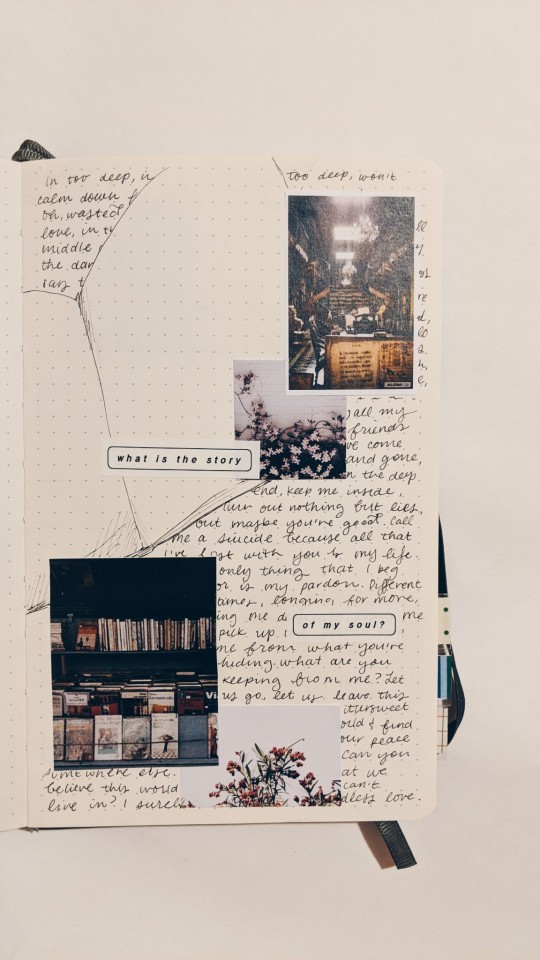 in too deep, i
calm down f
oh, wasted
love, in th
middle
the dar
say t
too deep, won't
ll
y
re
d,
lo
a
h,
e,
all my
friends
ve come
and gone,
n the deep
end, keep me inside,
turn out nothing but lies,
but maybe you're good. Call
me a suicide because all that
i've lost with you is my life.
only thing that I beg
or is my pardon. Different
times, longing for more,
ing me d me
pick up.
me from what you're
hiding. what are you
keeping from me? Let
us go, let us leave this
ittersweet
orld & find
our peace
Can you
at we
can't
dless love.
somewhere else.
believe this world
live in? I surely
what is the story
of my soul?